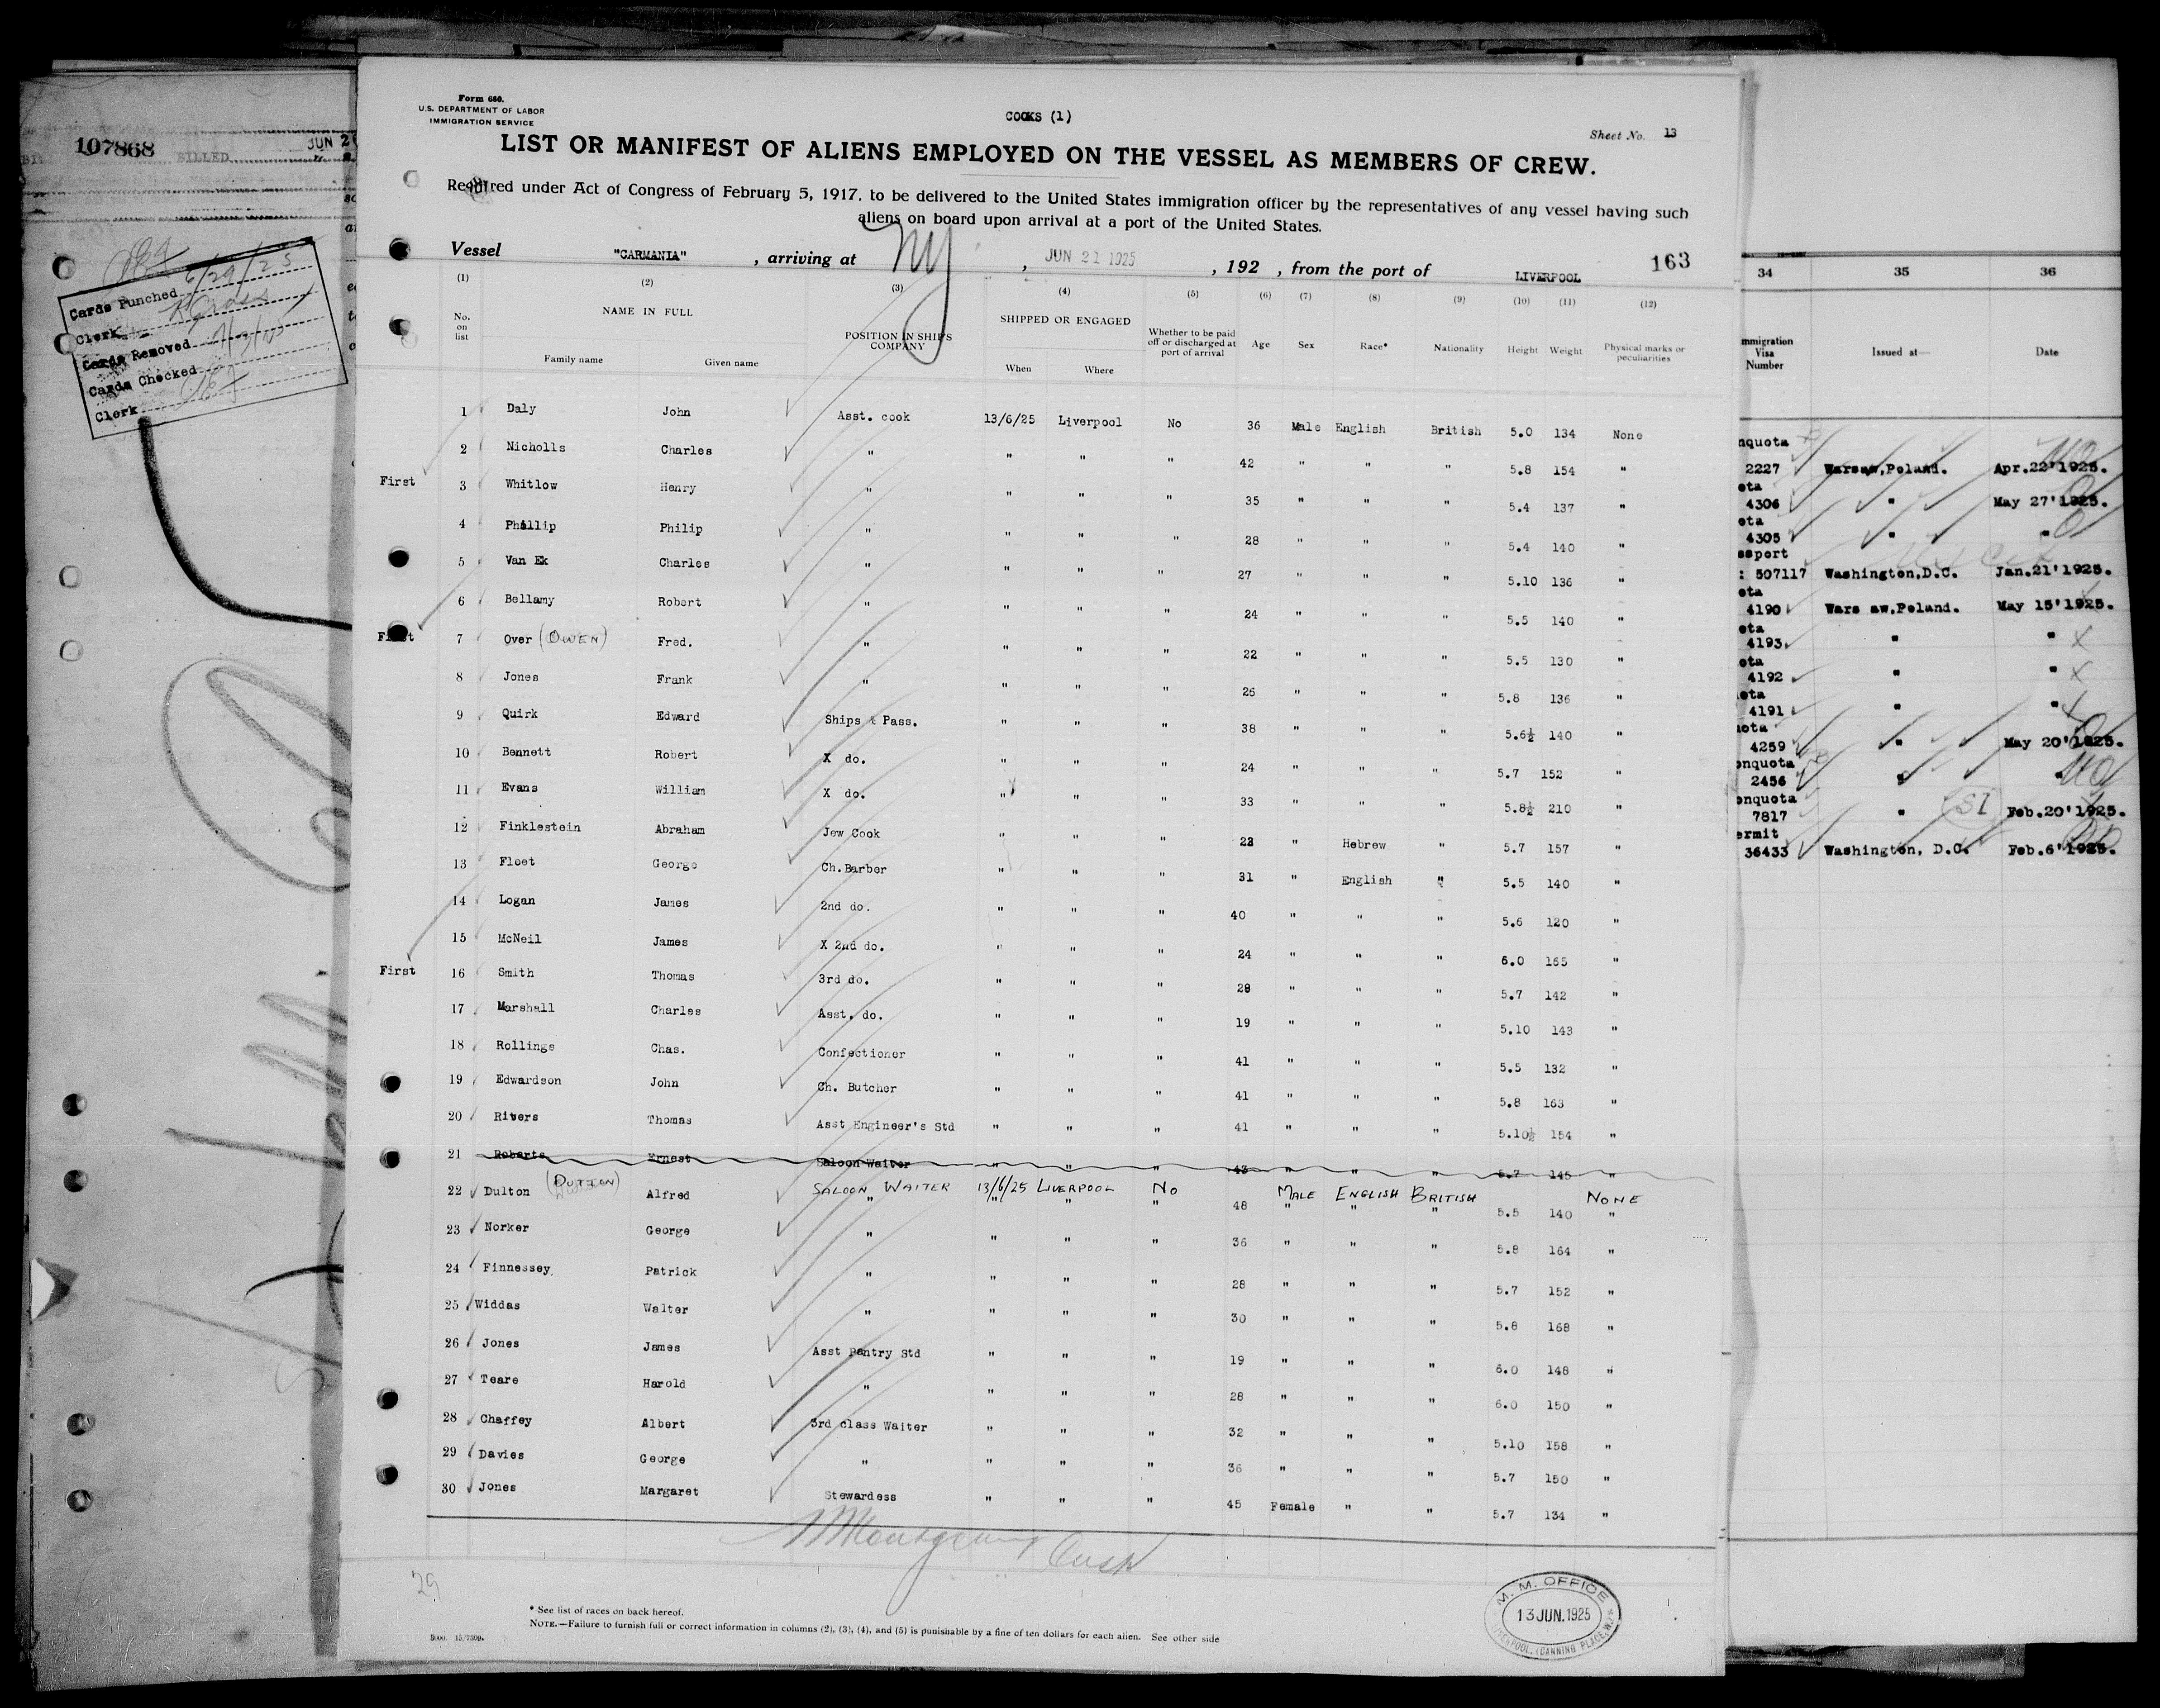 107868 BILLED JUN 2
6/29/25
Cards Punched
Clerk
Cards Removed
Cards Checked
Clerk
Form 680.
U.S. DEPARTMENT OF LABOR
IMMIGRATION SERVICE
COOKS (1)
Sheet No. 13
LIST OR MANIFEST OF ALIENS EMPLOYED ON THE VESSEL AS MEMBERS OF CREW.
Required under Act of Congress of February 5, 1917, to be delivered to the United States immigration officer by the representatives of any vessel having such
aliens on board upon arrival at a port of the United States.
Vessel "CARMANIA", arriving at NY, JUN 21 1925, 192 , from the port of LIVERPOOL 163
(1) (2) (3) (4) (5) (6) (7) (8) (9) (10) (11) (12)
No. on list NAME IN FULL Family name Given name POSITION IN SHIP'S COMPANY SHIPPED OR ENGAGED When Where Whether to be paid off or discharged at port of arrival Age Sex Race* Nationality Height Weight Physical marks or peculiarities
1 Daly John Asst. cook 13/6/25 Liverpool No 36 Male English British 5.0 134 None
2 Nicholls Charles " " " " 42 " " " 5.8 154 "
First 3 Whitlow Henry " " " " 35 " " " 5.4 137 "
4 Phillip Philip " " " " 28 " " " 5.4 140 "
5 Van Ek Charles " " " " 27 " " " 5.10 136 "
6 Bellamy Robert " " " " 24 " " " 5.5 140 "
First 7 Over (OWEN) Fred. " " " " 22 " " " 5.5 130 "
8 Jones Frank " " " " 25 " " " 5.8 136 "
9 Quirk Edward Ships & Pass. " " " 38 " " " 5.6½ 140 "
10 Bennett Robert X do. " " " 24 " " " 5.7 152 "
11 Evans William X do. " " " 33 " " " 5.8½ 210 "
12 Finklestein Abraham Jew Cook " " " 23 " Hebrew " 5.7 157 "
13 Fleet George Ch.Barber " " " 31 " English " 5.5 140 "
14 Logan James 2nd do. " " " 40 " " " 5.6 120 "
15 McNeil James X 2nd do. " " " 24 " " " 6.0 165 "
First 16 Smith Thomas 3rd do. " " " 28 " " " 5.7 142 "
17 Marshall Charles Asst. do. " " " 19 " " " 5.10 143 "
18 Rollings Chas. Confectioner " " " 41 " " " 5.5 132 "
19 Edwardson John Ch. Butcher " " " 41 " " " 5.8 163 "
20 Rivers Thomas Asst Engineer's Std " " " 41 " " " 5.10½ 154 "
21 Roberts Ernest Saloon Waiter " " " 43 " " " 5.7 145 "
22 Dulton (DUTTON) Alfred SALOON WAITER 13/6/25 LIVERPOOL NO 48 MALE ENGLISH BRITISH 5.5 140 NONE
23 Norker George " " " " 36 " " " 5.8 164 "
24 Finnessey, Patrick " " " " 28 " " " 5.7 152 "
25 Widdas Walter " " " " 30 " " " 5.8 168 "
26 Jones James Asst Pantry Std " " " 19 " " " 6.0 148 "
27 Teare Harold " " " " 28 " " " 6.0 150 "
28 Chaffey Albert 3rd class Waiter " " " 32 " " " 5.10 158 "
29 Davies George " " " " 36 " " " 5.7 150 "
30 Jones Margaret Stewardess " " " 45 Female " " 5.7 134 "
29
* See list of races on back hereof.
NOTE.—Failure to furnish full or correct information in columns (2), (3), (4), and (5) is punishable by a fine of ten dollars for each alien. See other side
M. M. OFFICE
13 JUN. 1925
LIVERPOOL, (CANNING PLACE)
34 35 36
mmigration Visa Number Issued at— Date
nquota
2227 Warsaw,Poland. Apr.22'1925.
ota
4306 " May 27'1925.
ota
4305 " "
ssport
: 507117 Washington,D.C. Jan.21'1925.
ota
4190 Wars aw,Poland. May 15'1925.
ota
4193 " " X
ota
4192 " " X
ota
4191 " "
uota
4259 " May 20'1925.
onquota
2456 " "
onquota
7817 " SI Feb.20'1925.
ermit
36433 Washington, D.C. Feb.6'1925.